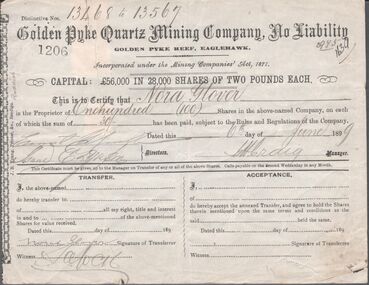 Distinctive Nos. 13468 to 13567
Golden Pyke Quartz Mining Company, No Liability
1206
GOLDEN PYKE REEF, EAGLEHAWK.
Incorporated under the Mining Companies' Act, 1871.
CAPITAL: £56,000 IN 28,000 SHARES OF TWO POUNDS EACH.
This is to Certify that Nora Glover
is the Proprietor of Onehundred (100) Shares in the above-named Company, on each
of which the sum of has been paid, subject to the Rules and Regulations of the Company.
Dated this 6th day of June 189
Directors. Manager.
This Certificate must be given up to the Manager on Transfer of any or all of the above Shares. Calls payable on the second Wednesday in any Month.
TRANSFER.
I, the above-named
do hereby transfer to
of all my right, title and interest
in and to of the above-mentioned
Shares for value received.
Dated this day of 189
Nora Glover Signature of Transferror
Witness
ACCEPTANCE.
I,
of
do hereby accept the above annexed Transfer, and agree to hold the Shares
therein mentioned upon the same terms and conditions as the
said held the same.
Dated this day of 189
Signature of Transferree
Witness